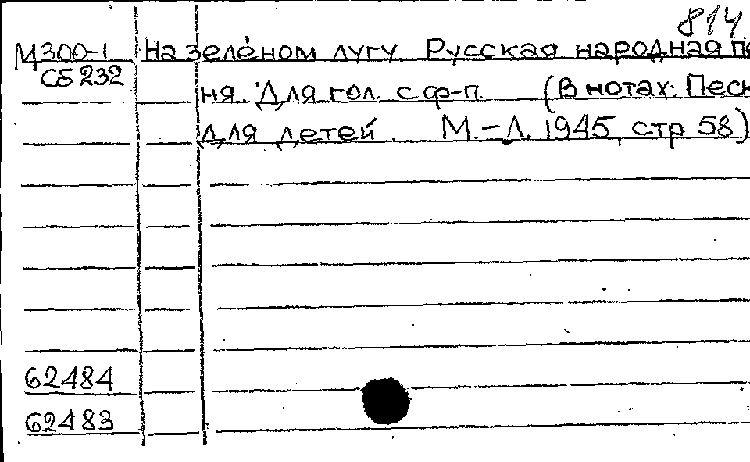 814
М300-1 На зелёном лугу. Русская народная пе
СБ 232
ня. Для гол. с ф-п. (В нотах: Песн
для детей. М.-Л. 1945, стр 58)
62484
62483